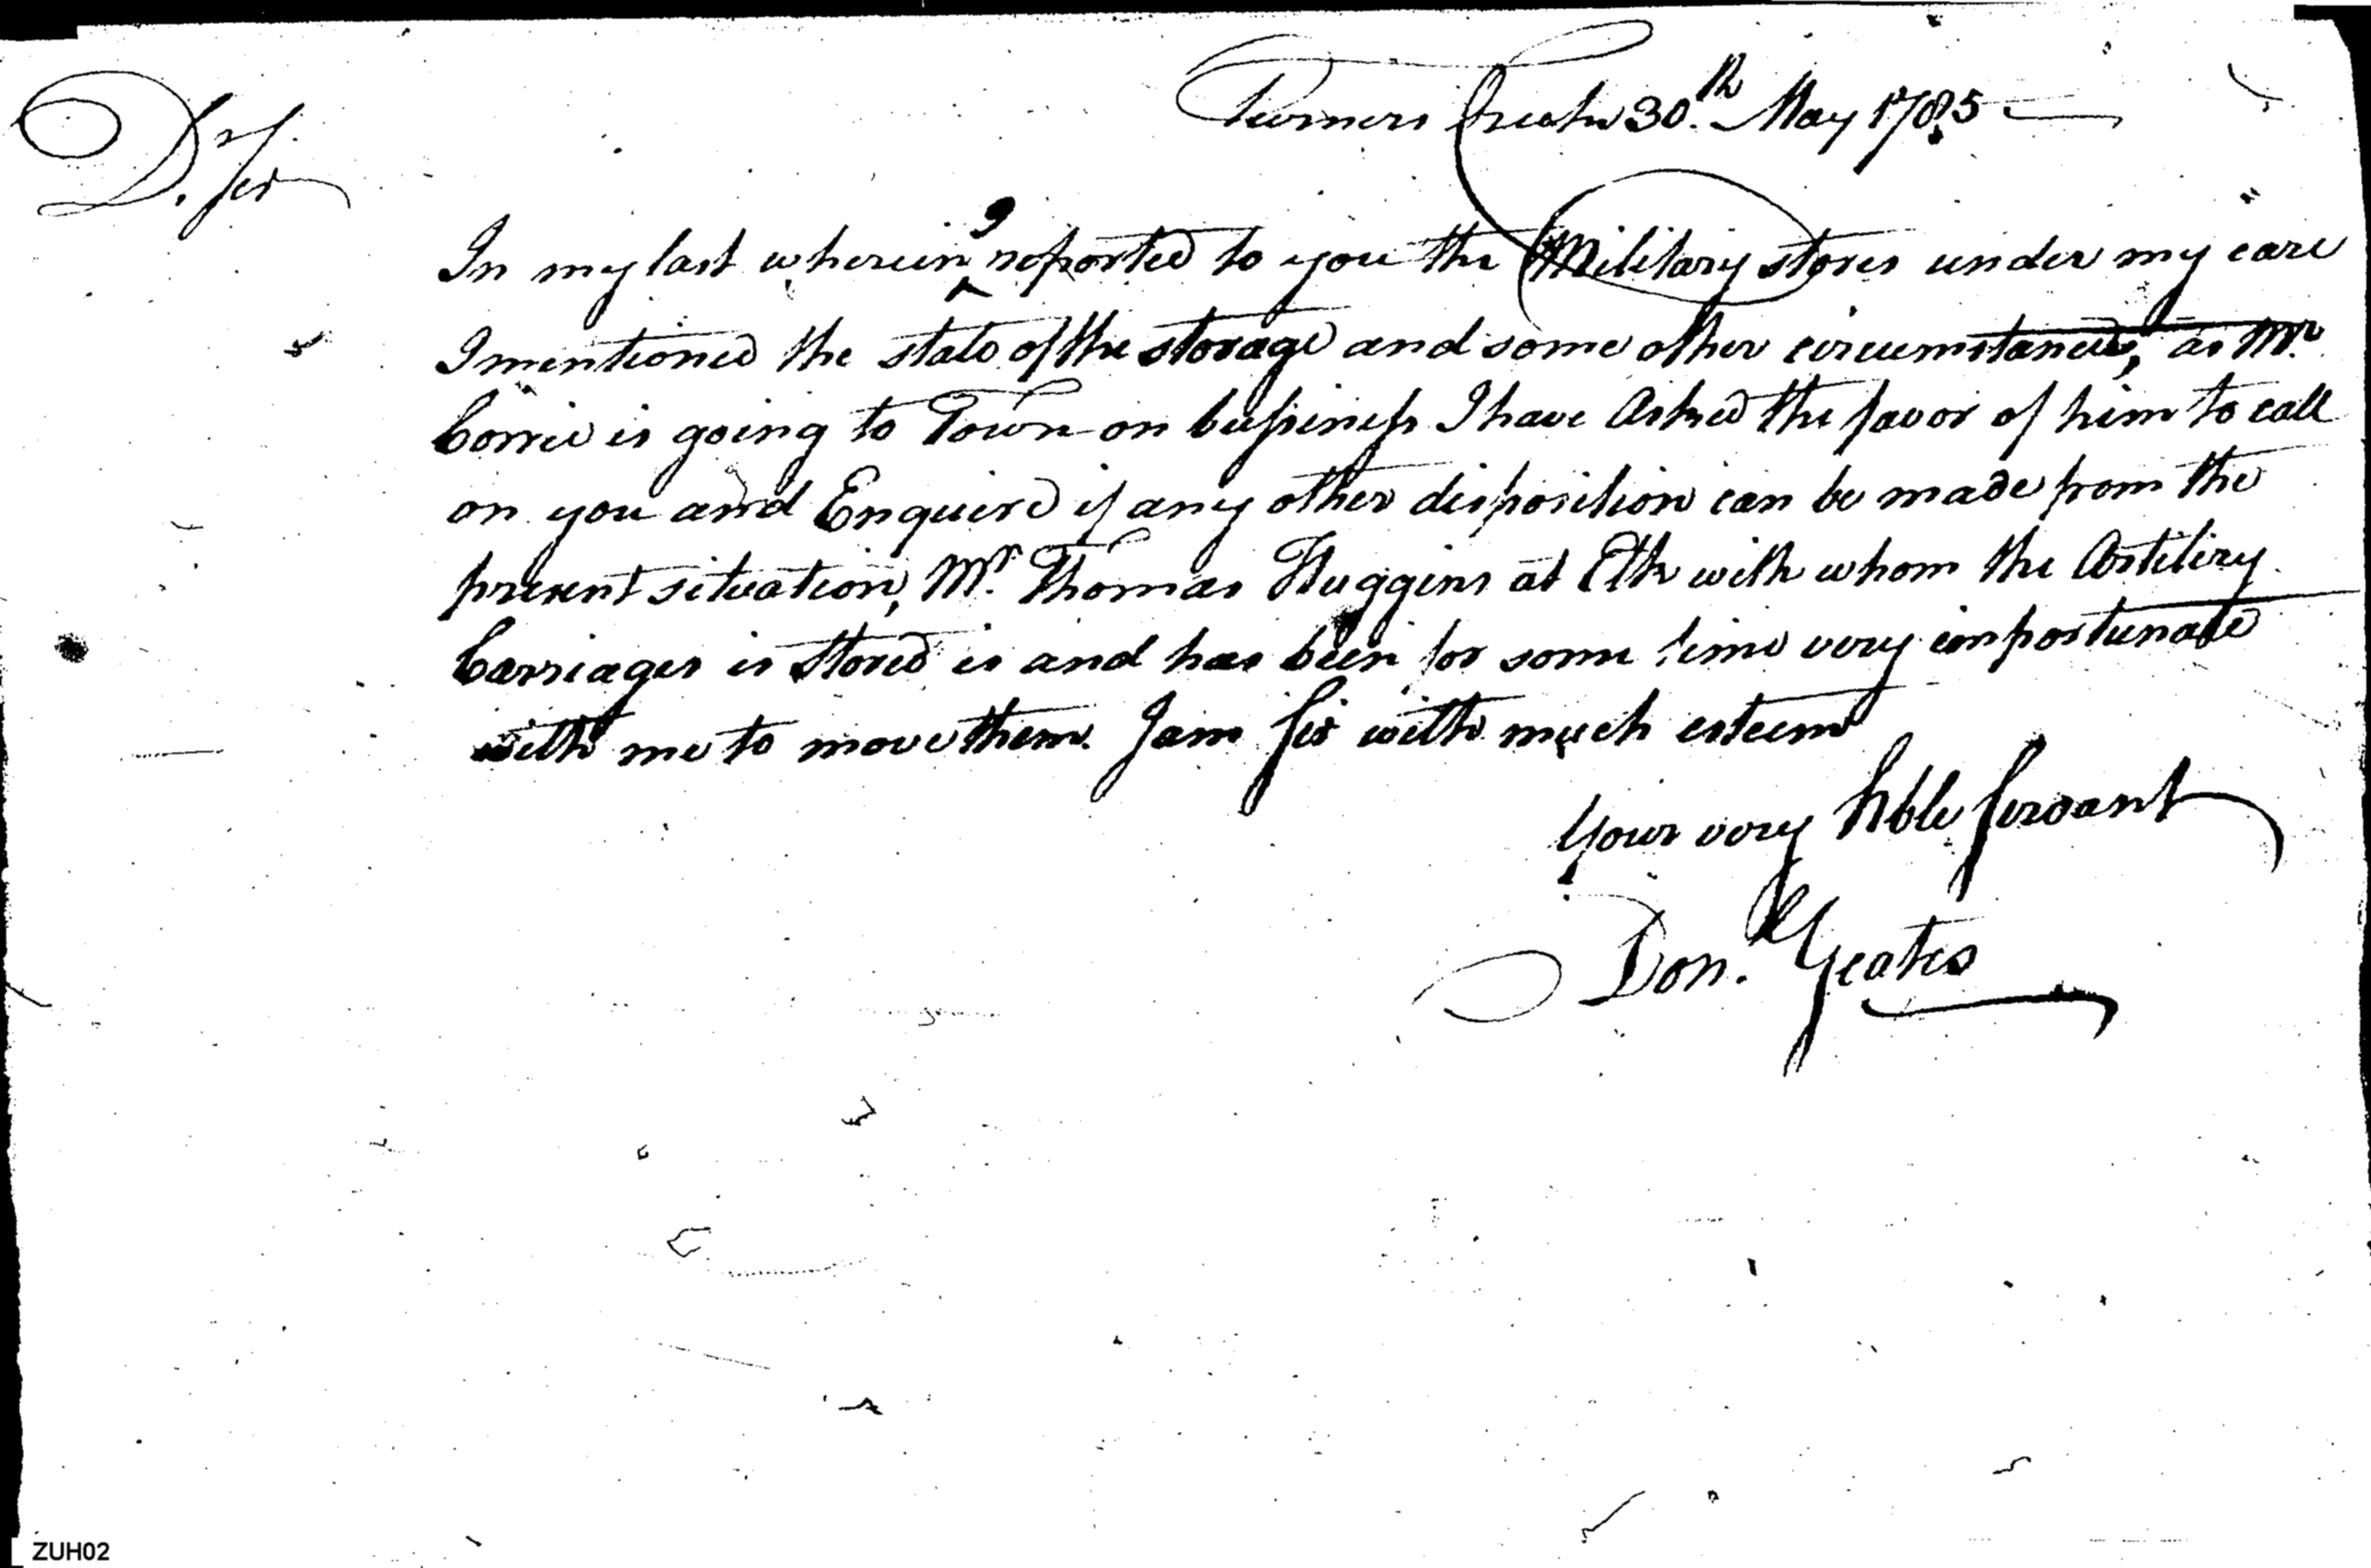 Turners Creek 30.th May 1785
Dr Sir
In my last wherein I reported to you the Military stores under my care
I mentioned the state of the storage and some other circumstances, as Mr.
Corrie is going to Town on bussiness I have Asked the favor of him to call
on you and Enquire if any other disposition can be made from the
present situation, Mr. Thomas Huggins at Elk with whom the Artilery
Carriages is Stored is and has been for some time very importunate
with me to move them. I am Sir with much esteem
Your very hble Servant
Don. Yeates
ZUH02